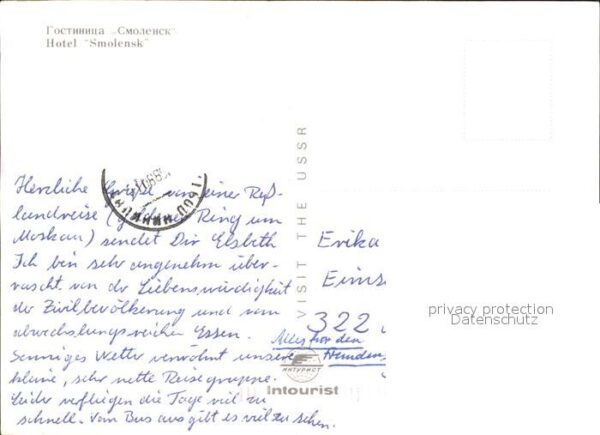 Гостиница „Смоленск“
Hotel "Smolensk"
VISIT THE USSR
Herzliche Grüße von einer Ruß-
landreise (goldener Ring um
Moskau) sendet Dir Elsbeth
Ich bin sehr angenehm über-
rascht von der Liebenswürdigkeit
der Zivilbevölkerung und vom
abwechslungsreichen Essen.
Sonniges Wetter verwöhnt unsere
kleine, sehr nette Reisegruppe.
Leider verfliegen die Tage viel zu
schnell. Vom Bus aus gibt es viel zu sehen.
Erika
322
Alles für den
Fremden
ИНТУРИСТ
Intourist
privacy protection
Datenschutz